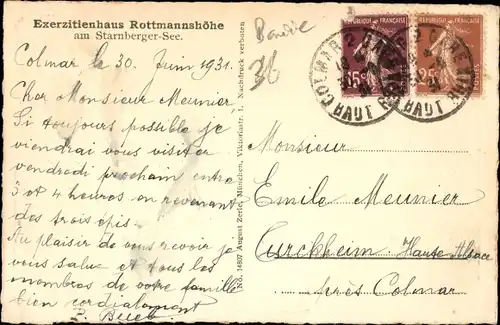 Exerzitienhaus Rottmannshöhe
am Starnberger-See.
Colmar le 30 Juin 1931.
Cher Monsieur Meunier,
Si toujours possible je
viendrai vous visiter
vendredi prochain entre
3 et 4 heures en revenant
des trois épis.
Au plaisir de vous revoir je
vous salue et tous les
membres de votre famille
bien cordialement
No. 14897 August Zerle, München, Viktoriastr. 1. Nachdruck verboten
36
RÉPUBLIQUE FRANÇAISE
15c
RÉPUBLIQUE FRANÇAISE
25c
COLMAR
HAUT RHIN
Monsieur
Emile Meunier
Turckheim Haute Alsace
près Colmar